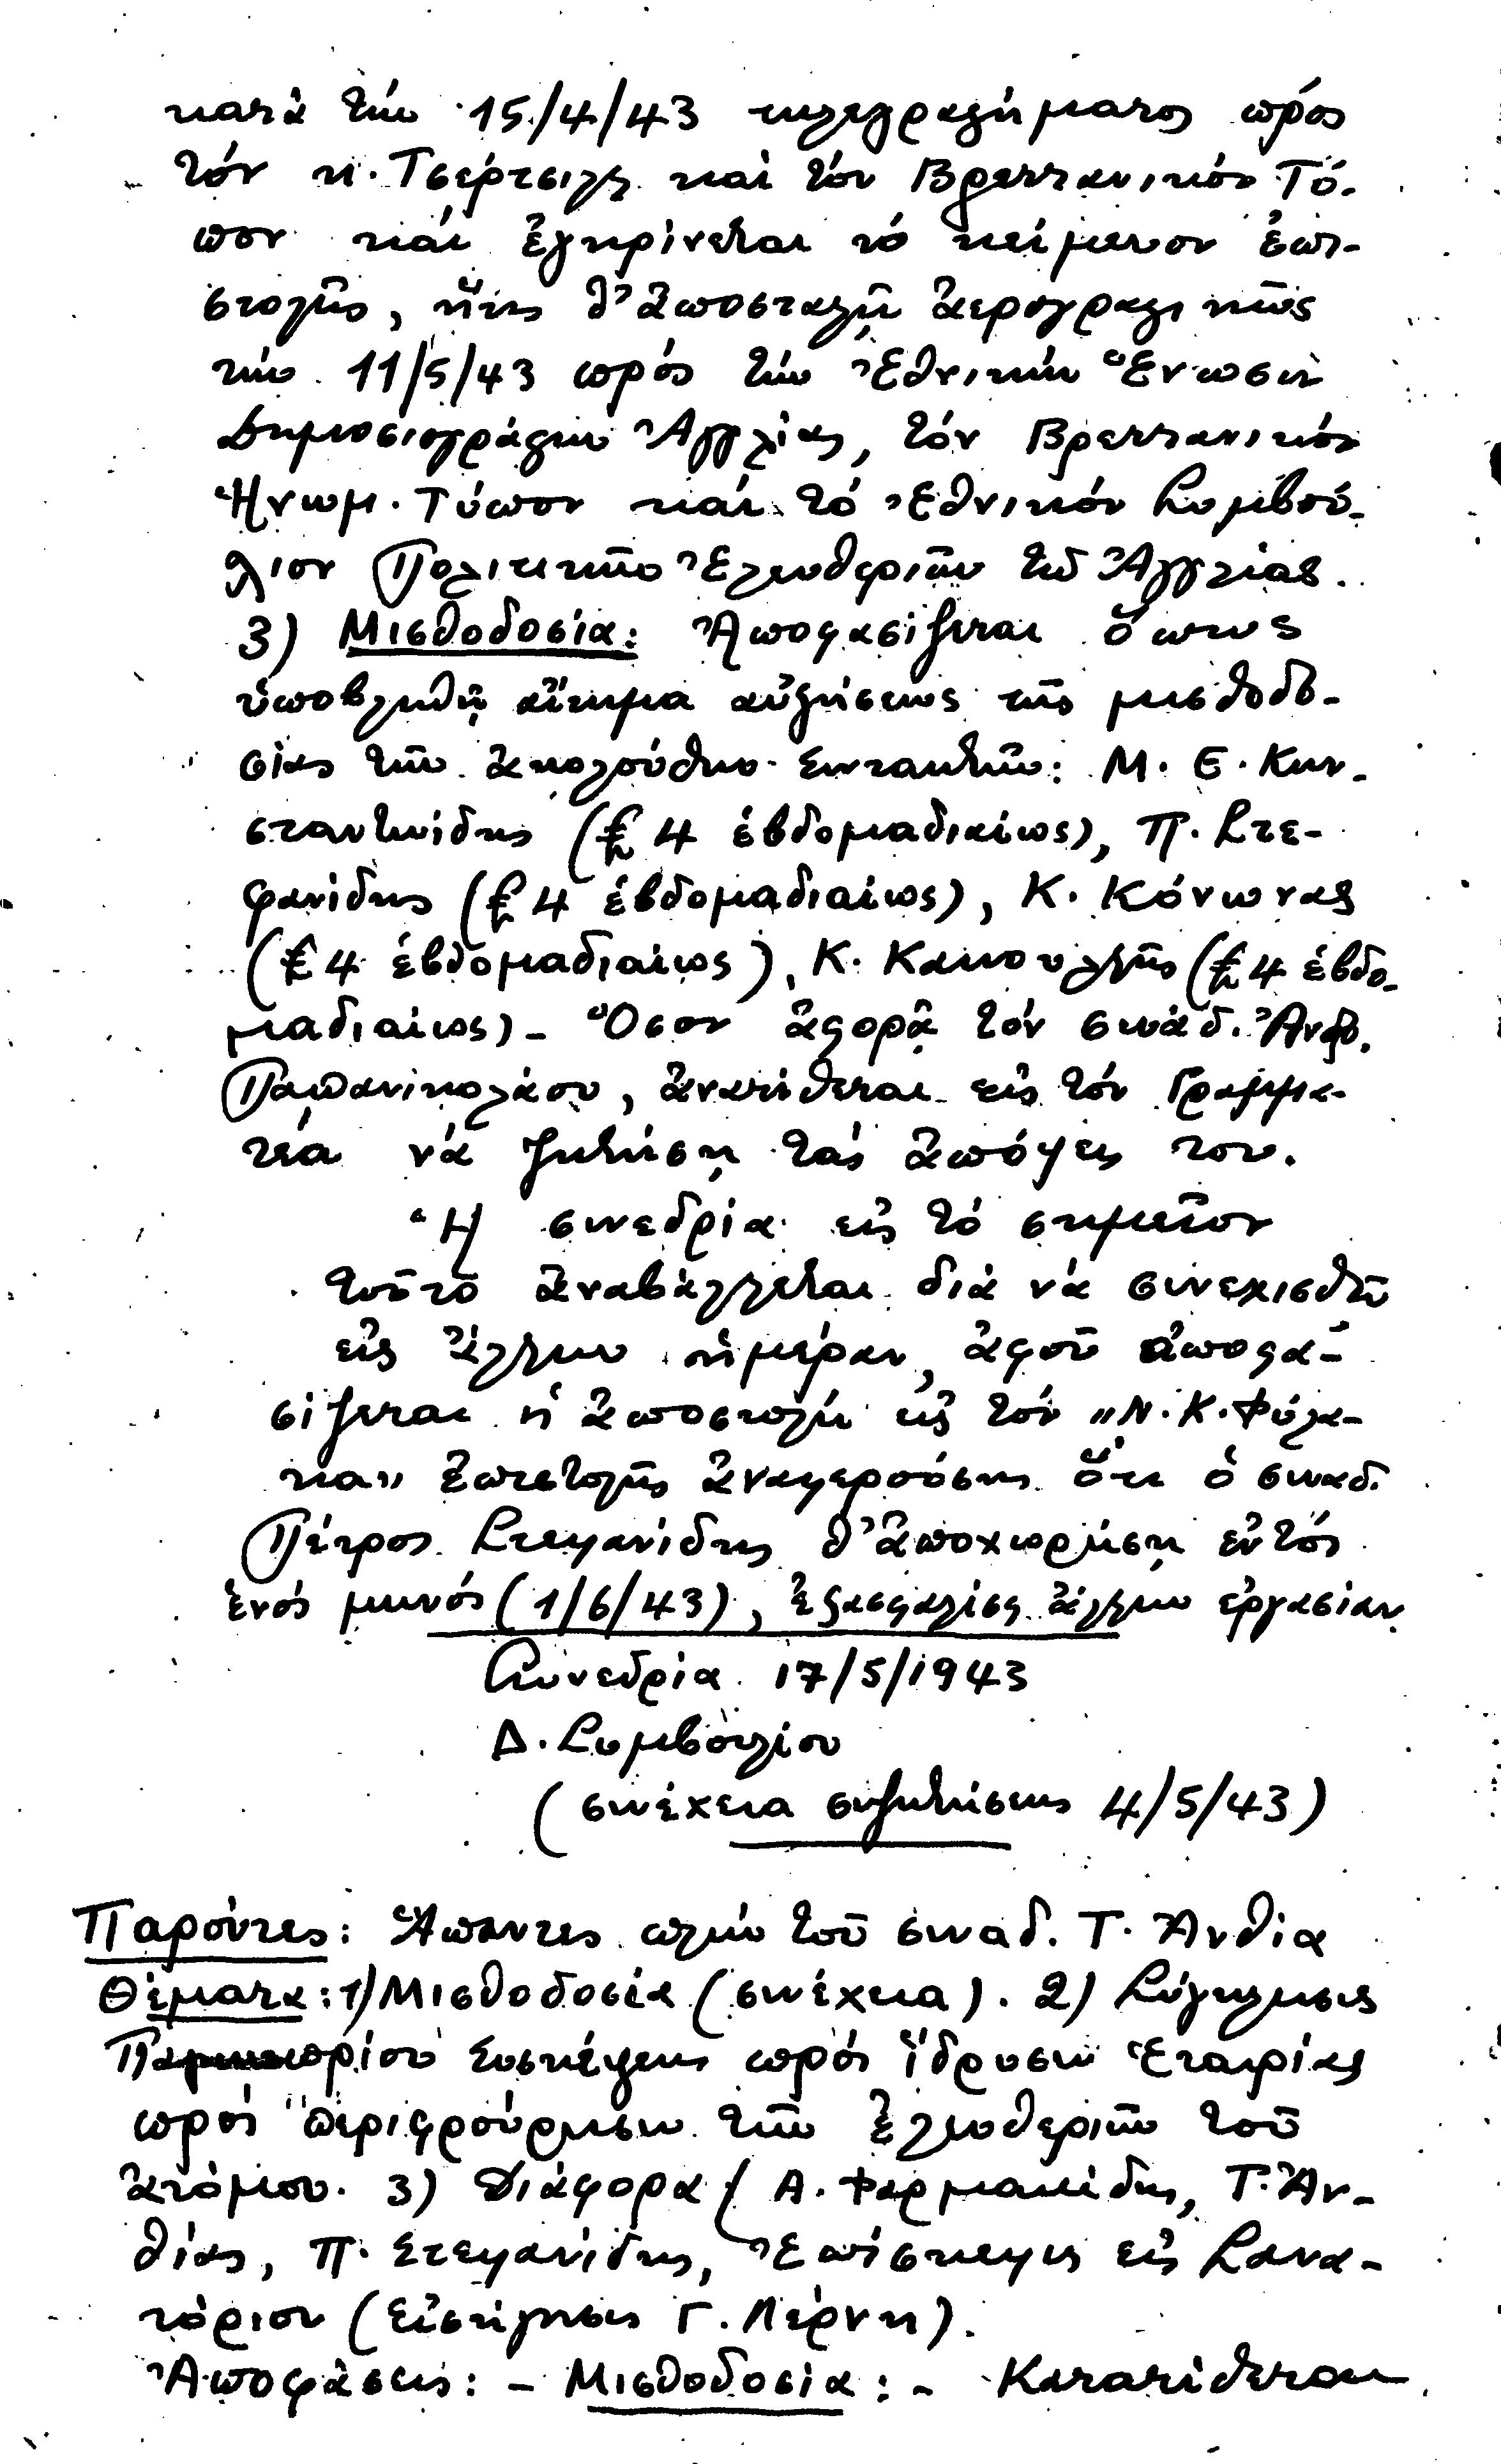 κατά τήν 15/4/43 τηλεγραφήματος πρός
τόν κ. Τσέρτσιλλ καί τόν Βρεττανικόν Τύ-
πον καί ἐγκρίνεται τό κείμενον ἐπι-
στολῆς, ἥτις θ' ἀποσταλῇ ἀερογραφικῶς
τήν 11/5/43 πρός τήν Ἐθνικήν Ἕνωσιν
Δημοσιογράφων Ἀγγλίας, τόν Βρεττανικόν
Ἡνωμ. Τύπον καί τό Ἐθνικόν Συμβού-
λιον Πολιτικῶν Ἐλευθεριῶν τῆς Ἀγγλίας.
3) Μισθοδοσία: Ἀποφασίζεται ὅπως
ὑποβληθῇ αἴτημα αὐξήσεως τῆς μισθοδο-
σίας τῶν ἀκολούθων συντακτῶν: Μ. Ε. Κων-
σταντινίδης (£4 ἑβδομαδιαίως), Π. Στε-
φανίδης (£4 ἑβδομαδιαίως), Κ. Κόνωνας
(£4 ἑβδομαδιαίως), Κ. Κακουλλῆς (£4 ἑβδο-
μαδιαίως)- Ὅσον ἀφορᾷ τόν συνάδ. Ἀνδρ.
Παπανικολάου, ἀνατίθεται εἰς τόν Γραμμα-
τέα νά ζητήσῃ τάς ἀπόψεις του.
Ἡ συνεδρία εἰς τό σημεῖον
τοῦτο ἀναβάλλεται διά νά συνεχισθῇ
εἰς ἄλλην ἡμέραν, ἀφοῦ ἀποφα-
σίζεται ἡ ἀποστολή εἰς τόν "Ν. Κ. Φύλα-
κα" ἐπιστολῆς ἀναφερούσης ὅτι ὁ συναδ.
Πέτρος Στεφανίδης θ' ἀποχωρήσῃ ἐντός
ἑνός μηνός (1/6/43), ἐξασφαλίσας ἄλλην ἐργασίαν.
Συνεδρία 17/5/1943
Δ. Συμβουλίου
(συνέχεια συζητήσεως 4/5/43)
Παρόντες: Ἅπαντες πλήν τοῦ συναδ. Τ. Ἀνθία
Θέματα: 1) Μισθοδοσία (συνέχεια). 2) Σύγκλησις
Συσκέψεως πρός ἵδρυσιν Ἑταιρίας
πρός περιφρούρησιν τῶν ἐλευθεριῶν τοῦ
ἀτόμου. 3) Διάφορα (Α. Φαρμακίδης, Τ. Ἀν-
θίας, Π. Στεφανίδης, Ἐπίσκεψις εἰς Σανα-
τόριον (εἰσήγησις Γ. Πέρνη).
Ἀποφάσεις: - Μισθοδοσία: - Κατατίθεται